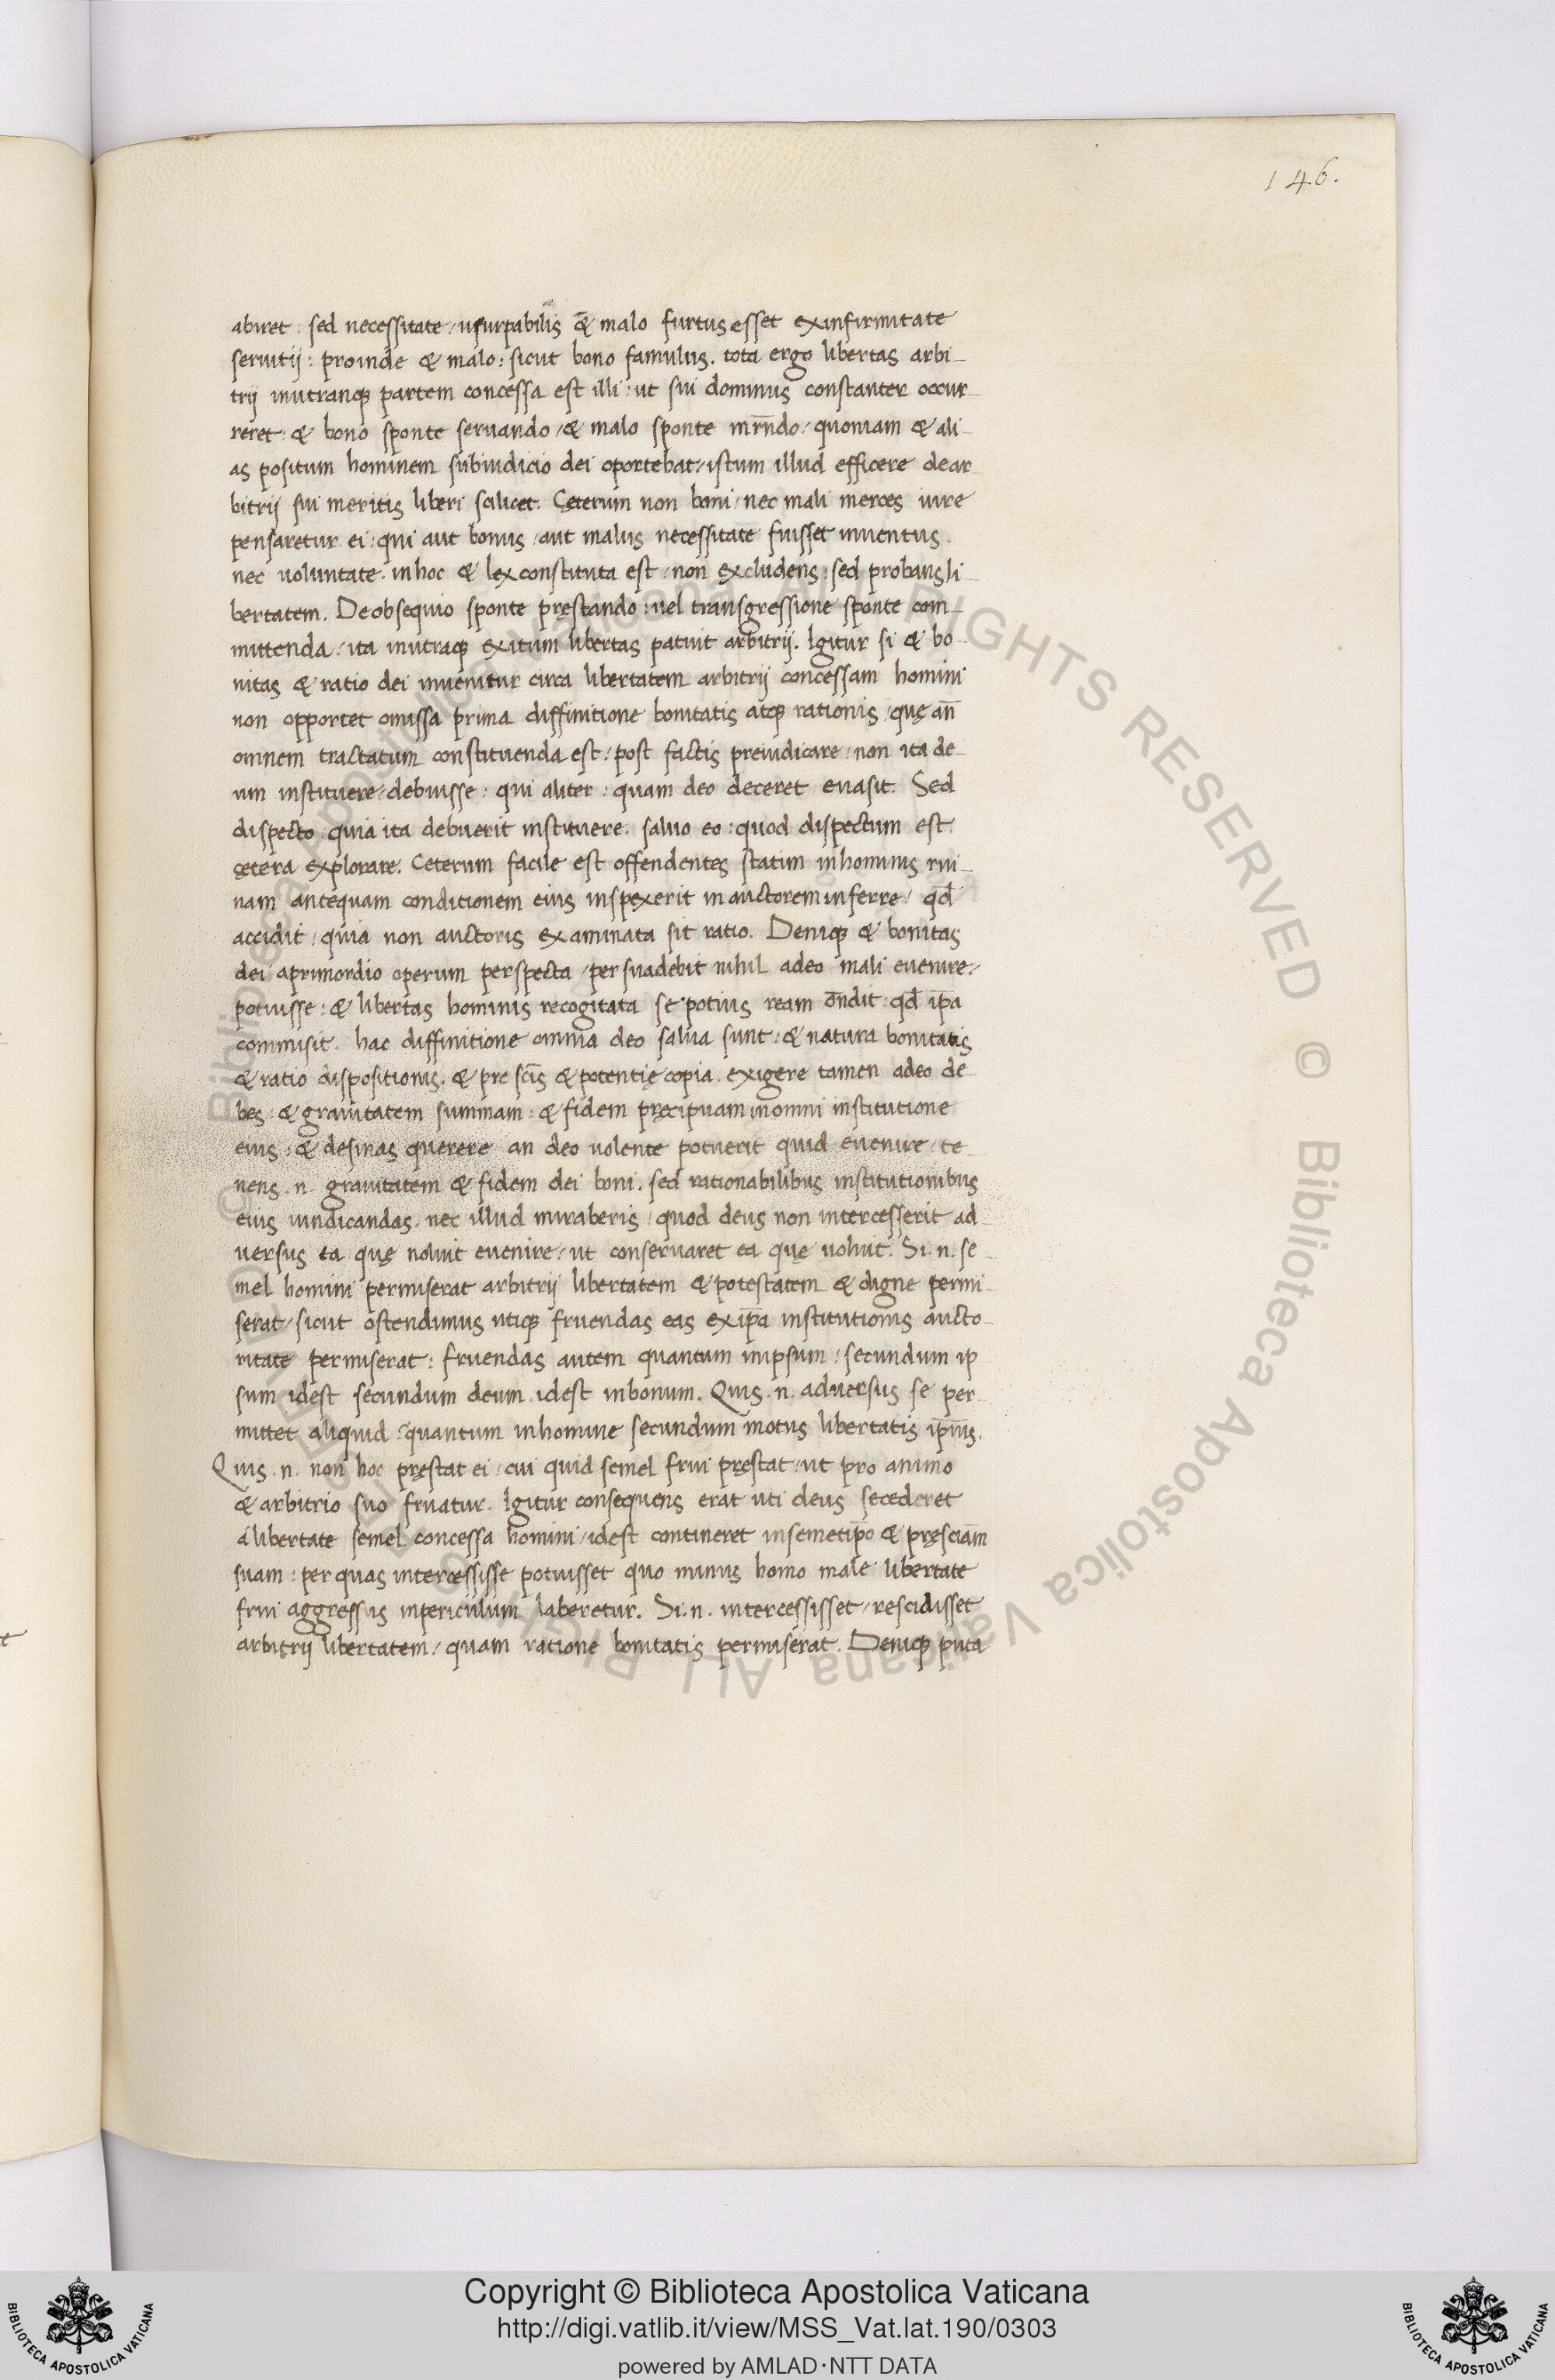 146.
abiret : sed necessitate / usurpabilis & malo furtus esset exinfirmitate
seruitij : proinde & malo : sicut bono famulus . tota ergo libertas arbi-
trij inutranq; partem concessa est illi : ut sui dominus constanter occur-
reret : & bono sponte seruando / & malo sponte mr̄ndo / quoniam & ali-
as positum hominem subiudicio dei oportebat / istum illud efficere dear-
bitrij sui meritis liberi scilicet . Cęterum non boni / nec mali merces iure
pensaretur ei : qui aut bonus / aut malus necessitate fuisset inuentus .
nec voluntate . inhoc & lex constituta est / non excludens : sed probans li-
bertatem . Deobsequio sponte pręstando : uel transgressione sponte com-
mittenda / ita inutraq; exitum libertas patuit arbitrij . Igitur si & bo-
nitas & ratio dei inuenitur circa libertatem arbitrij concessam homini
non opportet omissa prima diffinitione bonitatis atq; rationis / quę an̄
omnem tractatum constituenda est / post factis preiudicare / non ita de-
um instituere / debuisse : qui aliter : quam deo deceret euasit . Sed
dispecto quia ita debuerit instituere . saluo eo : quod dispectum est .
cętera explorare . Ceterum facile est offendentes statim inhominis rui-
nam antequam conditionem eius inspexerit in auctorem inferre / qd̄
accidit / quia non auctoris examinata sit ratio . Deniq; & bonitas
dei aprimordio operum perspecta / persuadebit nihil adeo mali euenire /
potuisse : & libertas hominis recogitata se potius ream on̄dit : qd̄ ip̄a
commisit . hac diffinitione omnia deo salua sunt : & natura bonitatis
& ratio dispositionis . & pre scīs & potentię copia . exigere tamen adeo de-
bes : & grauitatem summam : & fidem pręcipuam inomni institutione
eius : & desinas querere an deo uolente potuerit quid euenire / te-
nens .n. grauitatem & fidem dei boni . sed rationabilibus institutionibus
eius uindicandas . nec illud miraberis / quod deus non intercesserit ad-
uersus ea quę noluit euenire / ut conseruaret ea quę uoluit . Si .n. se-
mel homini permiserat arbitrij libertatem & potestatem & digne permi-
serat / sicut ostendimus utiq; fruendas eas exip̄a institutionis aucto-
ritate permiserat : fruendas autem quantum inipsum / secundum ip
sum idest secundum deum . idest inbonum . Quis .n. aduersus se per-
mittet aliquid / quantum inhomine secundum motus libertatis ip̄ius .
Quis .n. non hoc pręstat ei / cui quid semel frui pręstat / ut pro animo
& arbitrio suo fruatur . Igitur consequens erat uti deus secederet
a libertate semel concessa homini / idest contineret insemetip̄o & pręsciam̄
suam : per quas intercessisse potuisset quo minus homo male libertate
frui aggressus inpericulum laberetur . Si .n. intercessisset / rescidisset
arbitrij libertatem / quam ratione bonitatis permiserat . Deniq; puta
Copyright © Biblioteca Apostolica Vaticana
http://digi.vatlib.it/view/MSS_Vat.lat.190/0303
powered by AMLAD·NTT DATA